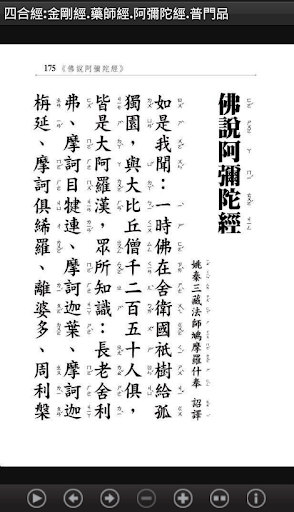 四合經:金剛經.藥師經.阿彌陀經.普門品
175《佛說阿彌陀經》
佛說阿彌陀經
姚秦三藏法師鳩摩羅什奉 詔譯
如是我聞：一時佛在舍衛國祇樹給孤
獨園，與大比丘僧千二百五十人俱，
皆是大阿羅漢，眾所知識：長老舍利
弗、摩訶目犍連、摩訶迦葉、摩訶迦
栴延、摩訶俱絺羅、離婆多、周利槃